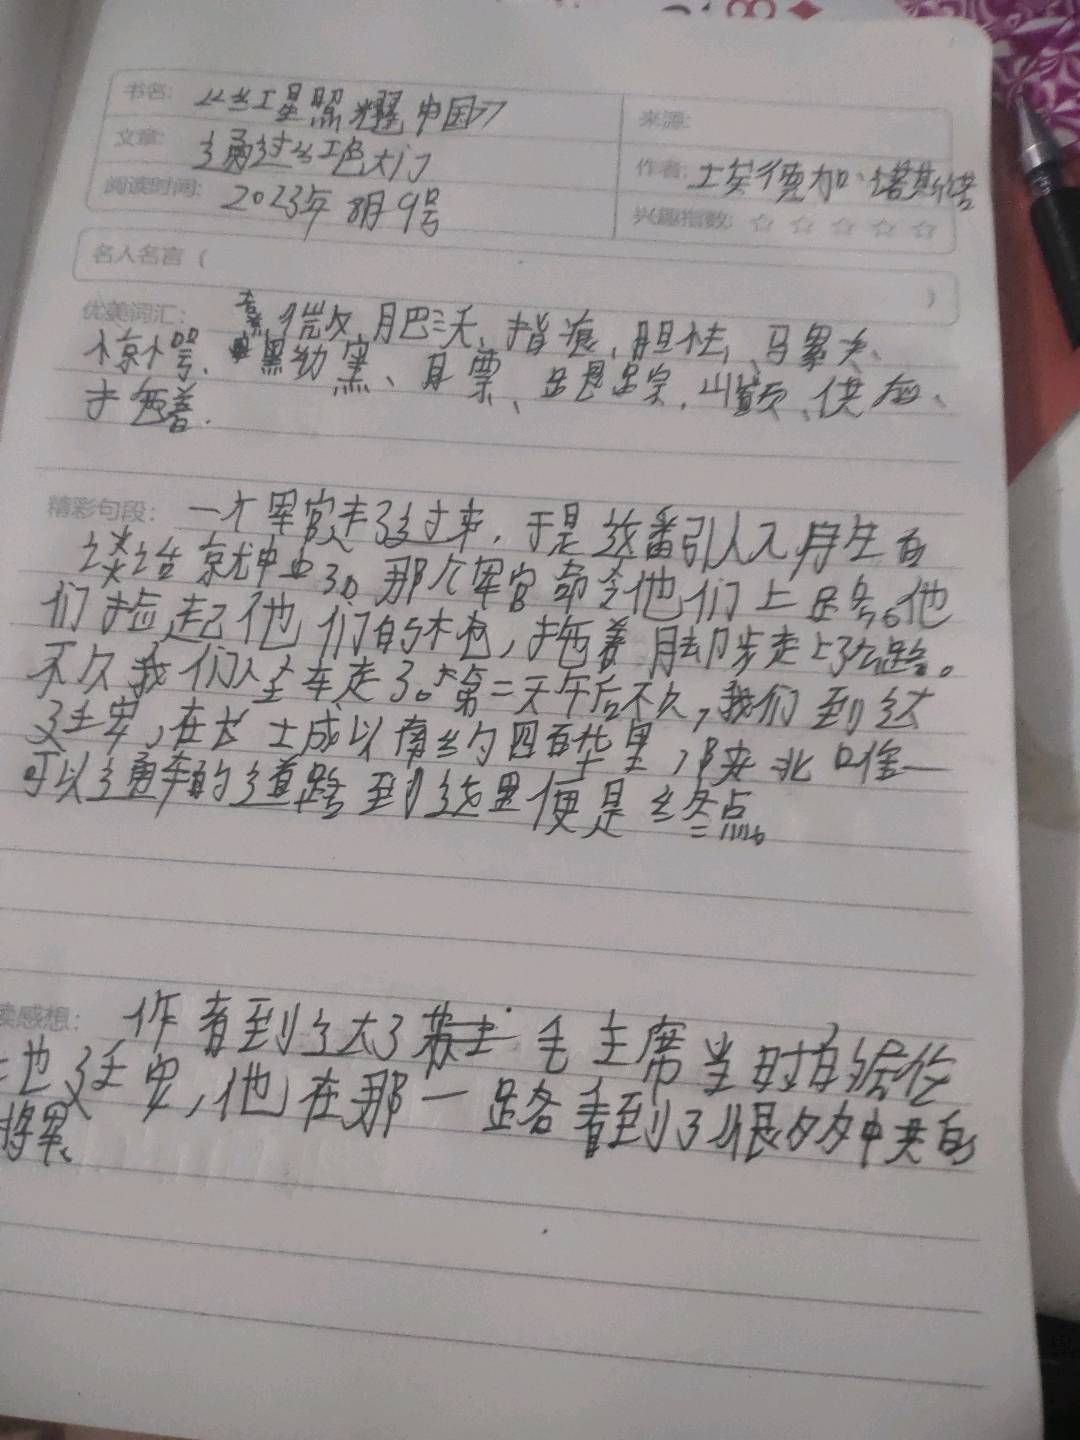 书名: 《红星照耀中国》
来源:
文章: 通过红色大门
作者: 埃德加·斯诺
阅读时间: 2023年8月9号
兴趣指数: ☆ ☆ ☆ ☆ ☆
名人名言 (
)
优美词汇: 收、肥三天、揩痕、胆怯、骡夫、
惊愕、黝黑、瞟、山巅、供应、
拖着.
精彩句段: 一个军官走了过来,于是这番引人入
谈话就中止了。那个军官命令他们上路。他
们捡起他们的木枪,拖着脚步走上了公路。
不久我们坐车走了。第二天午后不久,我们到达
延安,在长城以南约四百华里,陕北唯一
可以通车的道路到这里便是终点。
感想: 作者到达了 毛主席当时的
地延安,他在那一路看到了很多中共的
将军、